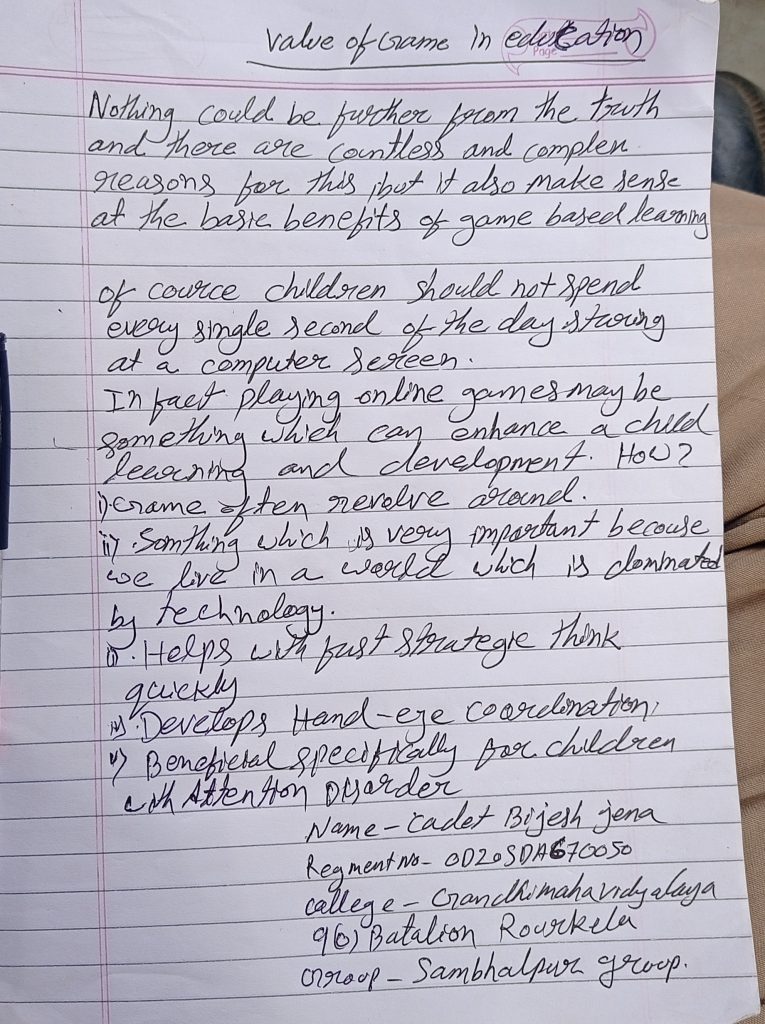 Value of Game in education
Page
Nothing could be further from the truth
and there are countless and complex
reasons for this, but it also make sense
at the basic benefits of game based learning
of cource children should not spend
every single second of the day staring
at a computer screen.
In fact playing online games may be
something which can enhance a child
learning and development. How?
i) Game often revolve around.
ii) Somthing which is very important becouse
we live in a world which is dominated
by technology.
iii) Helps with fast strategic think
quickly
iv) Develops Hand-eye coordination,
v) Beneficial specifically for children
with Attention Disorder
Name - Cadet Bijesh jena
Regment No - OD20SDA670050
callege - Gandhimahavidyalaya
Batalion Rourkela
Group - Sambhalpur group.